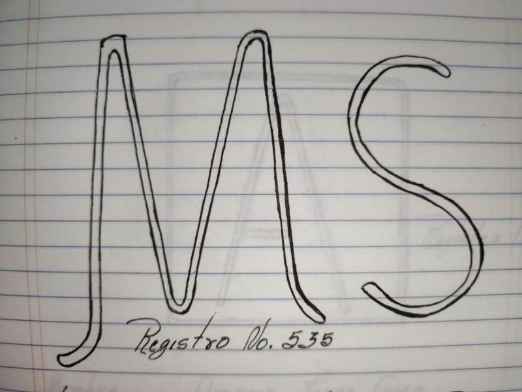 MS
Registro No. 535